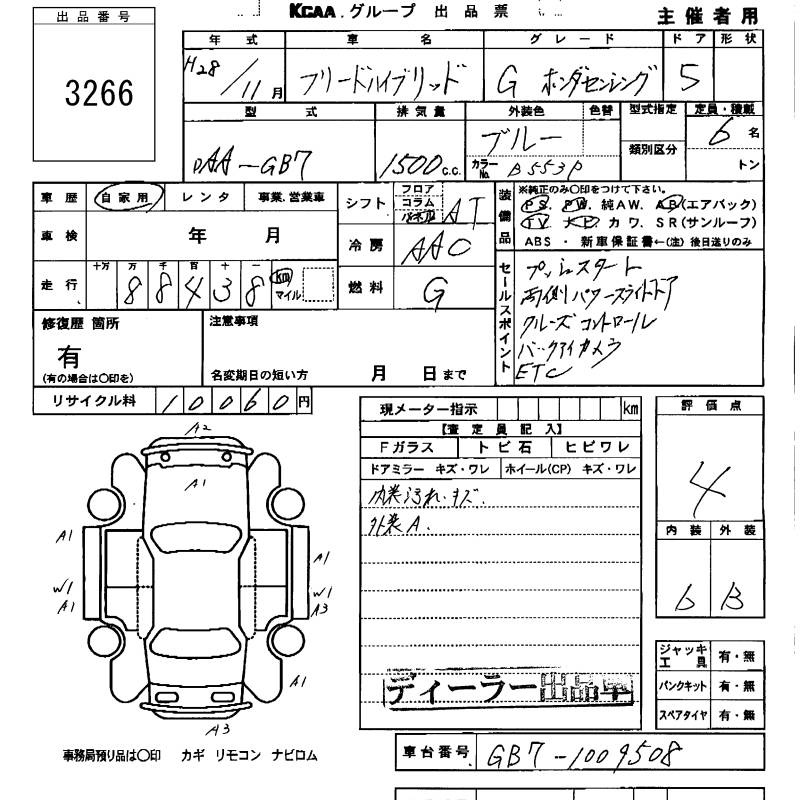 出品番号
3266
KCAA.グループ 出品票
主催者用
年式 車名 グレード ドア 形状
H28/11月 フリードハイブリッド G ホンダセンシング 5
型式 排気量 外装色 色替 型式指定 定員・積載
類別区分
DAA-GB7 1500c.c. ブルー カラーNo. B553P 6名
トン
車歴 自家用 レンタ 事業、営業車
シフト フロア コラム パネル AT
装備品
※純正のみ〇印をつけて下さい。
PS. PW. 純AW. AB(エアバック)
TV カワ. SR(サンルーフ)
ABS ・ 新車保証書←(注) 後日送りのみ
車検 年 月
冷房 AAC
走行 十万 万 千 百 十 一
88438 km マイル
燃料 G
セールスポイント
プッシュスタート
両側パワースライドドア
クルーズコントロール
バックアイカメラ
ETC
修復歴 箇所
有
(有の場合は〇印を)
注意事項
名変期日の短い方 月 日まで
リサイクル料 10060円
現メーター指示 km
【査定員記入】
Fガラス トビ石 ヒビワレ
ドアミラー キズ・ワレ ホイール(CP) キズ・ワレ
内装汚れ・キズ.
外装A.
評価点
4
内装 外装
6 B
A2
A1
A1
A1
W1
A1
W1
A3
A1
A3
ジャッキ工具 有・無
パンクキット 有・無
スペアタイヤ 有・無
ディーラー出品車
事務局預り品は〇印 カギ リモコン ナビロム
車台番号 GB7-1009508